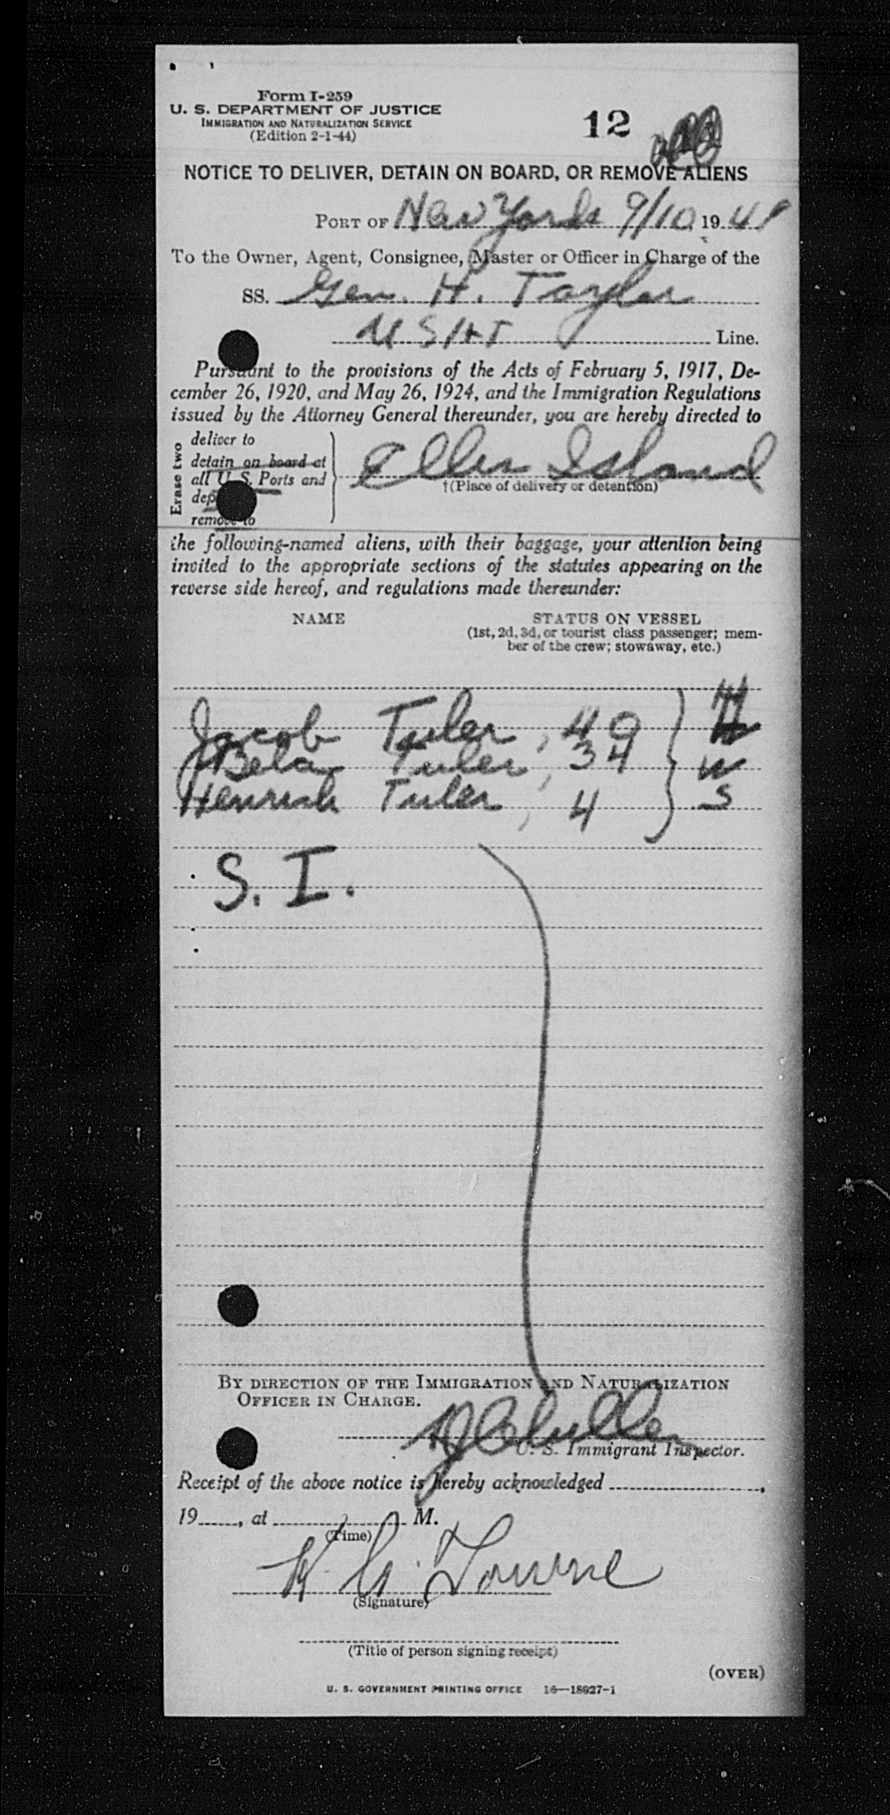 Form I-259
U. S. DEPARTMENT OF JUSTICE
IMMIGRATION AND NATURALIZATION SERVICE
(Edition 2-1-44)
12
NOTICE TO DELIVER, DETAIN ON BOARD, OR REMOVE ALIENS
PORT OF New York 9/10 19 49
To the Owner, Agent, Consignee, Master or Officer in Charge of the
SS. Gen. H. Taylor
Line.
Pursuant to the provisions of the Acts of February 5, 1917, De-
cember 26, 1920, and May 26, 1924, and the Immigration Regulations
issued by the Attorney General thereunder, you are hereby directed to
Erase two
deliver to
detain on board at
all U. S. Ports and
remove to
Ellis Island
†(Place of delivery or detention)
the following-named aliens, with their baggage, your attention being
invited to the appropriate sections of the statutes appearing on the
reverse side hereof, and regulations made thereunder:
NAME
STATUS ON VESSEL
(1st, 2d, 3d, or tourist class passenger; mem-
ber of the crew; stowaway, etc.)
Jacob Tuler, 40 } H
Bela Tuler, 34 W
Henrish Tuler, 4 S
S. I.
BY DIRECTION OF THE IMMIGRATION AND NATURALIZATION
OFFICER IN CHARGE.
U. S. Immigrant Inspector.
Receipt of the above notice is hereby acknowledged
19____, at ____ M.
(Time)
Towne
(Signature)
(Title of person signing receipt)
(OVER)
U. S. GOVERNMENT PRINTING OFFICE 16—18627-1